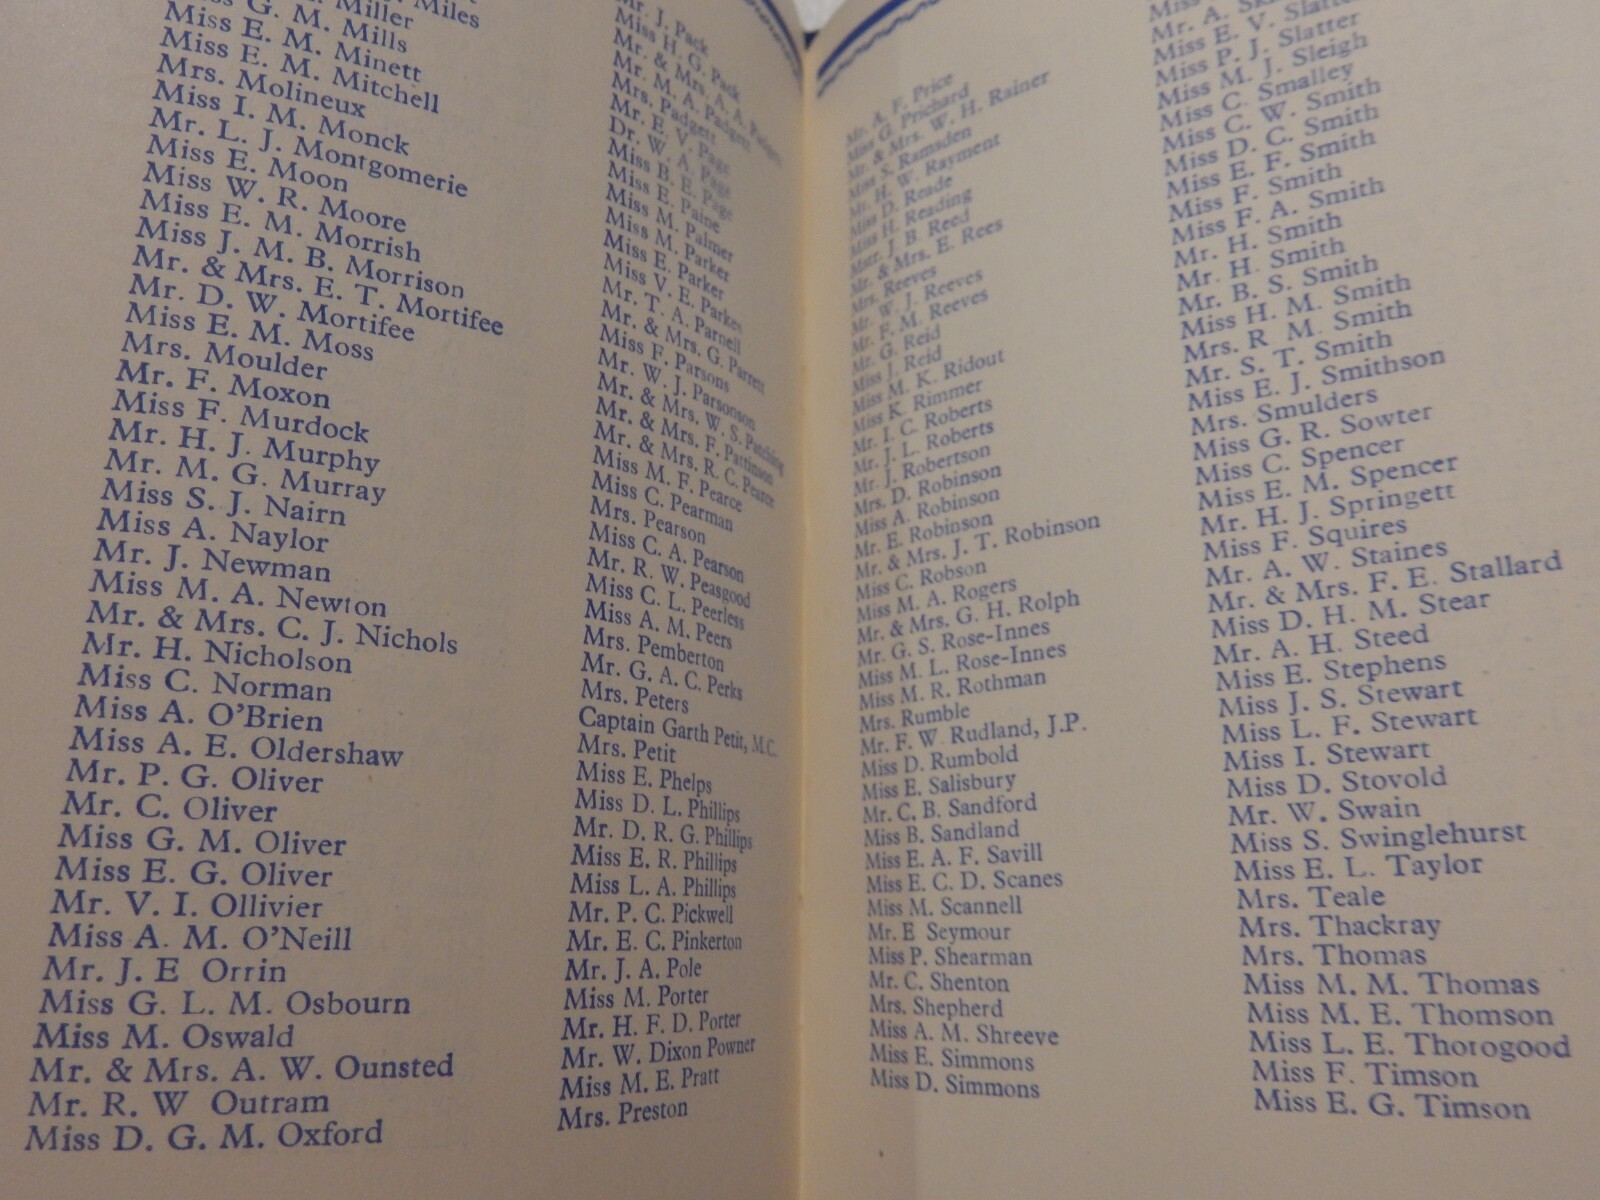 Miles
Miller
G. M. Mills
Miss E. M. Minett
Miss E. M. Mitchell
Mrs. Molineux
Miss I. M. Monck
Mr. L. J. Montgomerie
Miss E. Moon
Miss W. R. Moore
Miss E. M. Morrish
Miss J. M. B. Morrison
Mr. & Mrs. E. T. Mortifee
Mr. D. W. Mortifee
Miss E. M. Moss
Mrs. Moulder
Mr. F. Moxon
Miss F. Murdock
Mr. H. J. Murphy
Mr. M. G. Murray
Miss S. J. Nairn
Miss A. Naylor
Mr. J. Newman
Miss M. A. Newton
Mr. & Mrs. C. J. Nichols
Mr. H. Nicholson
Miss C. Norman
Miss A. O'Brien
Miss A. E. Oldershaw
Mr. P. G. Oliver
Mr. C. Oliver
Miss G. M. Oliver
Miss E. G. Oliver
Mr. V. I. Ollivier
Miss A. M. O'Neill
Mr. J. E Orrin
Miss G. L. M. Osbourn
Miss M. Oswald
Mr. & Mrs. A. W. Ounsted
Mr. R. W Outram
Miss D. G. M. Oxford
Mr. J. Pack
Miss H. G. Pack
Mr. & Mrs. A. A. Padgett
Mr. M. A. Padgett
Mrs. Padgett
Mr. E. V. Page
Dr. W. A. Page
Miss B. E. Page
Miss E. Paine
Miss M. Palmer
Miss M. Parker
Miss E. Parker
Miss V. E. Parker
Mr. T. A. Parnell
Mr. & Mrs. G. Parrett
Miss F. Parsons
Mr. W. J. Parsonson
Mr. & Mrs. W. S. Patching
Mr. & Mrs. F. Pattinson
Mr. & Mrs. R. C. Pearce
Miss M. F. Pearce
Miss C. Pearman
Mrs. Pearson
Miss C. A. Pearson
Mr. R. W. Peasgood
Miss C. L. Peerless
Miss A. M. Peers
Mrs. Pemberton
Mr. G. A. C. Perks
Mrs. Peters
Captain Garth Petit, M.C.
Mrs. Petit
Miss E. Phelps
Miss D. L. Phillips
Mr. D. R. G. Phillips
Miss E. R. Phillips
Miss L. A. Phillips
Mr. P. C. Pickwell
Mr. E. C. Pinkerton
Mr. J. A. Pole
Miss M. Porter
Mr. H. F. D. Porter
Mr. W. Dixon Powner
Miss M. E. Pratt
Mrs. Preston
Mr. A. F. Price
Miss G. Prichard
Mr. & Mrs. W. H. Rainer
Miss S. Ramsden
Mr. H. W. Rayment
Miss D. Reade
Miss H. Reading
Mstr. J. B. Reed
Mr. & Mrs. E. Rees
Mrs. Reeves
Mr. W. J. Reeves
Mr. F. M. Reeves
Mr. G. Reid
Miss J. Reid
Miss M. K. Ridout
Miss K. Rimmer
Mr. I. C. Roberts
Mr. J. L. Roberts
Mr. J. Robertson
Mrs. D. Robinson
Miss A. Robinson
Mr. E. Robinson
Mr. & Mrs. J. T. Robinson
Miss C. Robson
Miss M. A. Rogers
Mr. & Mrs. G. H. Rolph
Mr. G. S. Rose-Innes
Miss M. L. Rose-Innes
Miss M. R. Rothman
Mrs. Rumble
Mr. F. W. Rudland, J.P.
Miss D. Rumbold
Miss E. Salisbury
Mr. C. B. Sandford
Miss B. Sandland
Miss E. A. F. Savill
Miss E. C. D. Scanes
Miss M. Scannell
Mr. E Seymour
Miss P. Shearman
Mr. C. Shenton
Mrs. Shepherd
Miss A. M. Shreeve
Miss E. Simmons
Miss D. Simmons
Miss
Mr. A.
Miss E. V. Slatter
Miss P. J. Slatter
Miss M. J. Sleigh
Miss C. Smalley
Miss C. W. Smith
Miss D. C. Smith
Miss E. F. Smith
Miss F. Smith
Miss F. A. Smith
Mr. H. Smith
Mr. H. Smith
Mr. B. S. Smith
Miss H. M. Smith
Mrs. R M. Smith
Mr. S. T. Smith
Miss E. J. Smithson
Mrs. Smulders
Miss G. R. Sowter
Miss C. Spencer
Miss E. M. Spencer
Mr. H. J. Springett
Miss F. Squires
Mr. A. W. Staines
Mr. & Mrs. F. E. Stallard
Miss D. H. M. Stear
Mr. A. H. Steed
Miss E. Stephens
Miss J. S. Stewart
Miss L. F. Stewart
Miss I. Stewart
Miss D. Stovold
Mr. W. Swain
Miss S. Swinglehurst
Miss E. L. Taylor
Mrs. Teale
Mrs. Thackray
Mrs. Thomas
Miss M. M. Thomas
Miss M. E. Thomson
Miss L. E. Thorogood
Miss F. Timson
Miss E. G. Timson